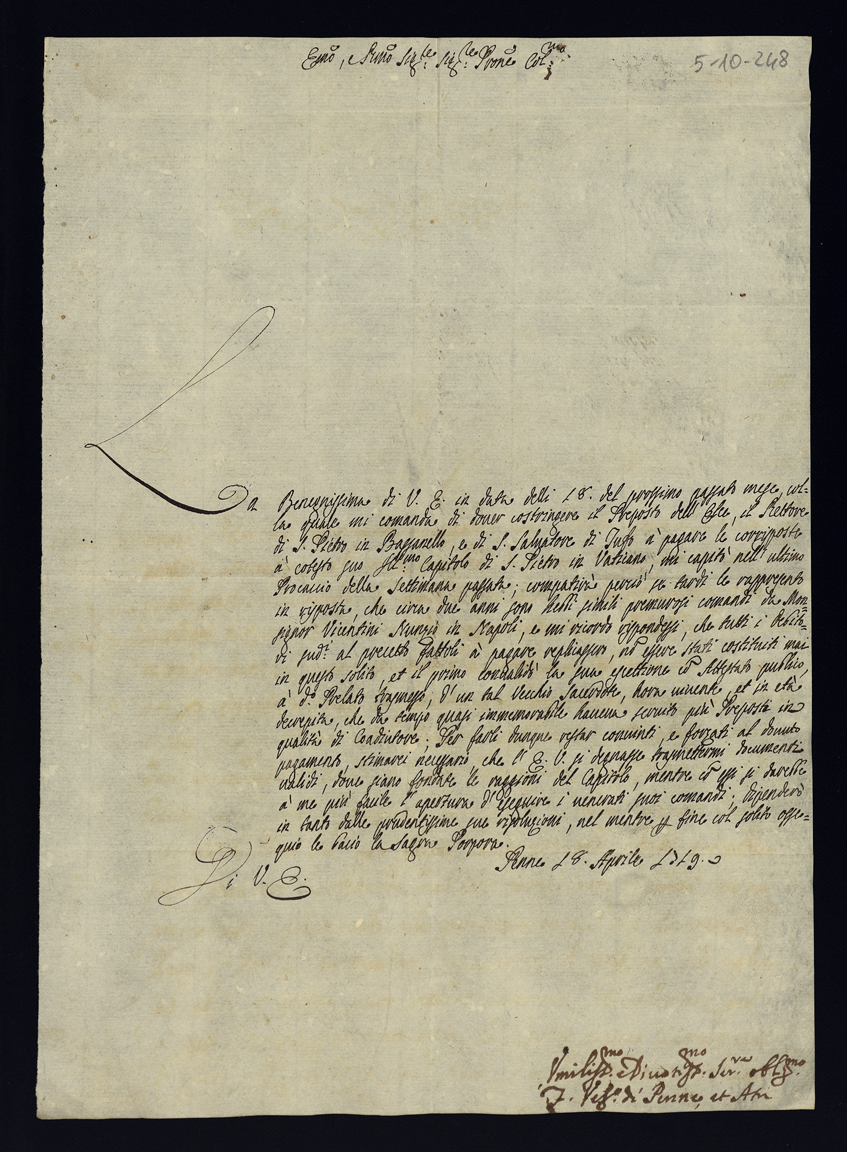 Emo, e Rmo Sig.re Sig.re Prone Col.mo
5-10-248
La Benegnissima di V. E. in data delli 18. del prossimo passato mese, col-
la quale mi comanda di dover costringere il Preposto dell' il Rettore
di S. Pietro in Bassanello, e di S. Salvatore di Tufo à pagare le corrisposte
à cotesto suo Ill.mo Capitolo di S. Pietro in Vaticano, mi capitò nell' ultimo
Procaccio della Settimana passata; compatirà perciò se tardi le rappresento
in risposta, che circa due anni sono hebbi simili premurosi comandi da Mon-
signor Vicentini Nunzio in Napoli, e mi ricordo rispondessi, che tutti i Debito-
ri sud.i al precetto fattoli à pagare replicassero, nõ essere stati costituiti mai
in questo solito, et il primo convalidò la sua eccettione cõ Attestato publico,
à d.o Prelato trasmesso, d'un tal Vecchio Sacerdote, hora vivente, et in età
decrepita, che da tempo quasi immemorabile haveva servito più Preposti in
qualità di Coadiutore; Per farli dunque restar convinti, e forzati al dovuto
pagamento, stimarei necessario, che l' E. V. si degnasse trasmettermi documenti
validi, dove siano fondate le raggioni del Capitolo, mentre cõ essi si darebbe
à me più facile l' apertura d' eseguire i venerati suoi comandi; dipenderò
in tanto dalle prudentissime sue risoluzioni, nel mentre p fine col solito osse-
quio le bacio la Sagra Porpora.
Penne 18. Aprile 1719.
Di V. E.
Vmiliss.mo e Divotiss.mo Ser.re obl.mo
F. Vesc.o di Penne, et Atri